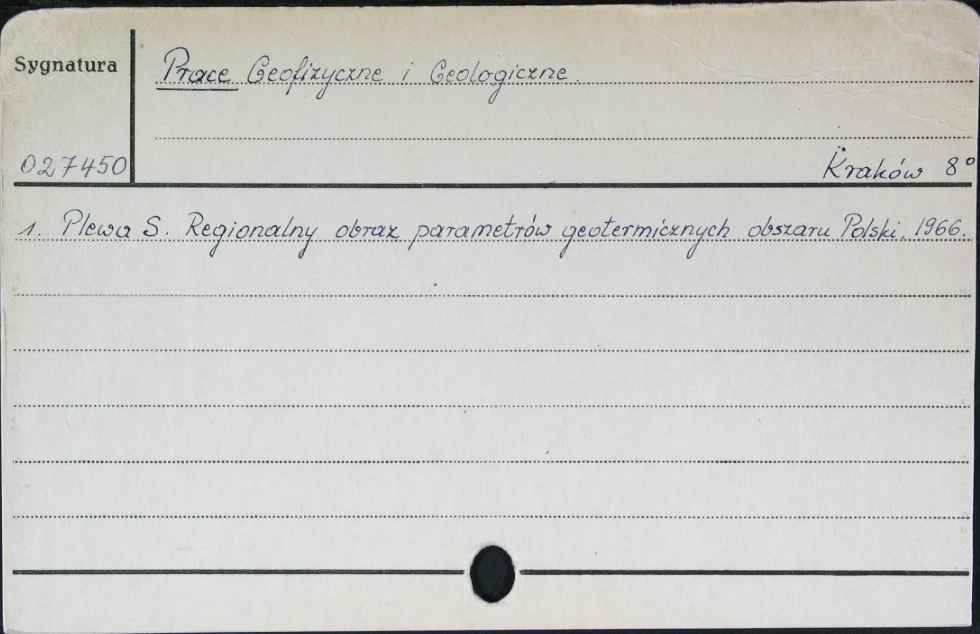 Sygnatura
Prace Geofizyczne i Geologiczne.
027450
Kraków 8°
1. Plewa S. Regionalny obraz parametrów geotermicznych obszaru Polski. 1966.